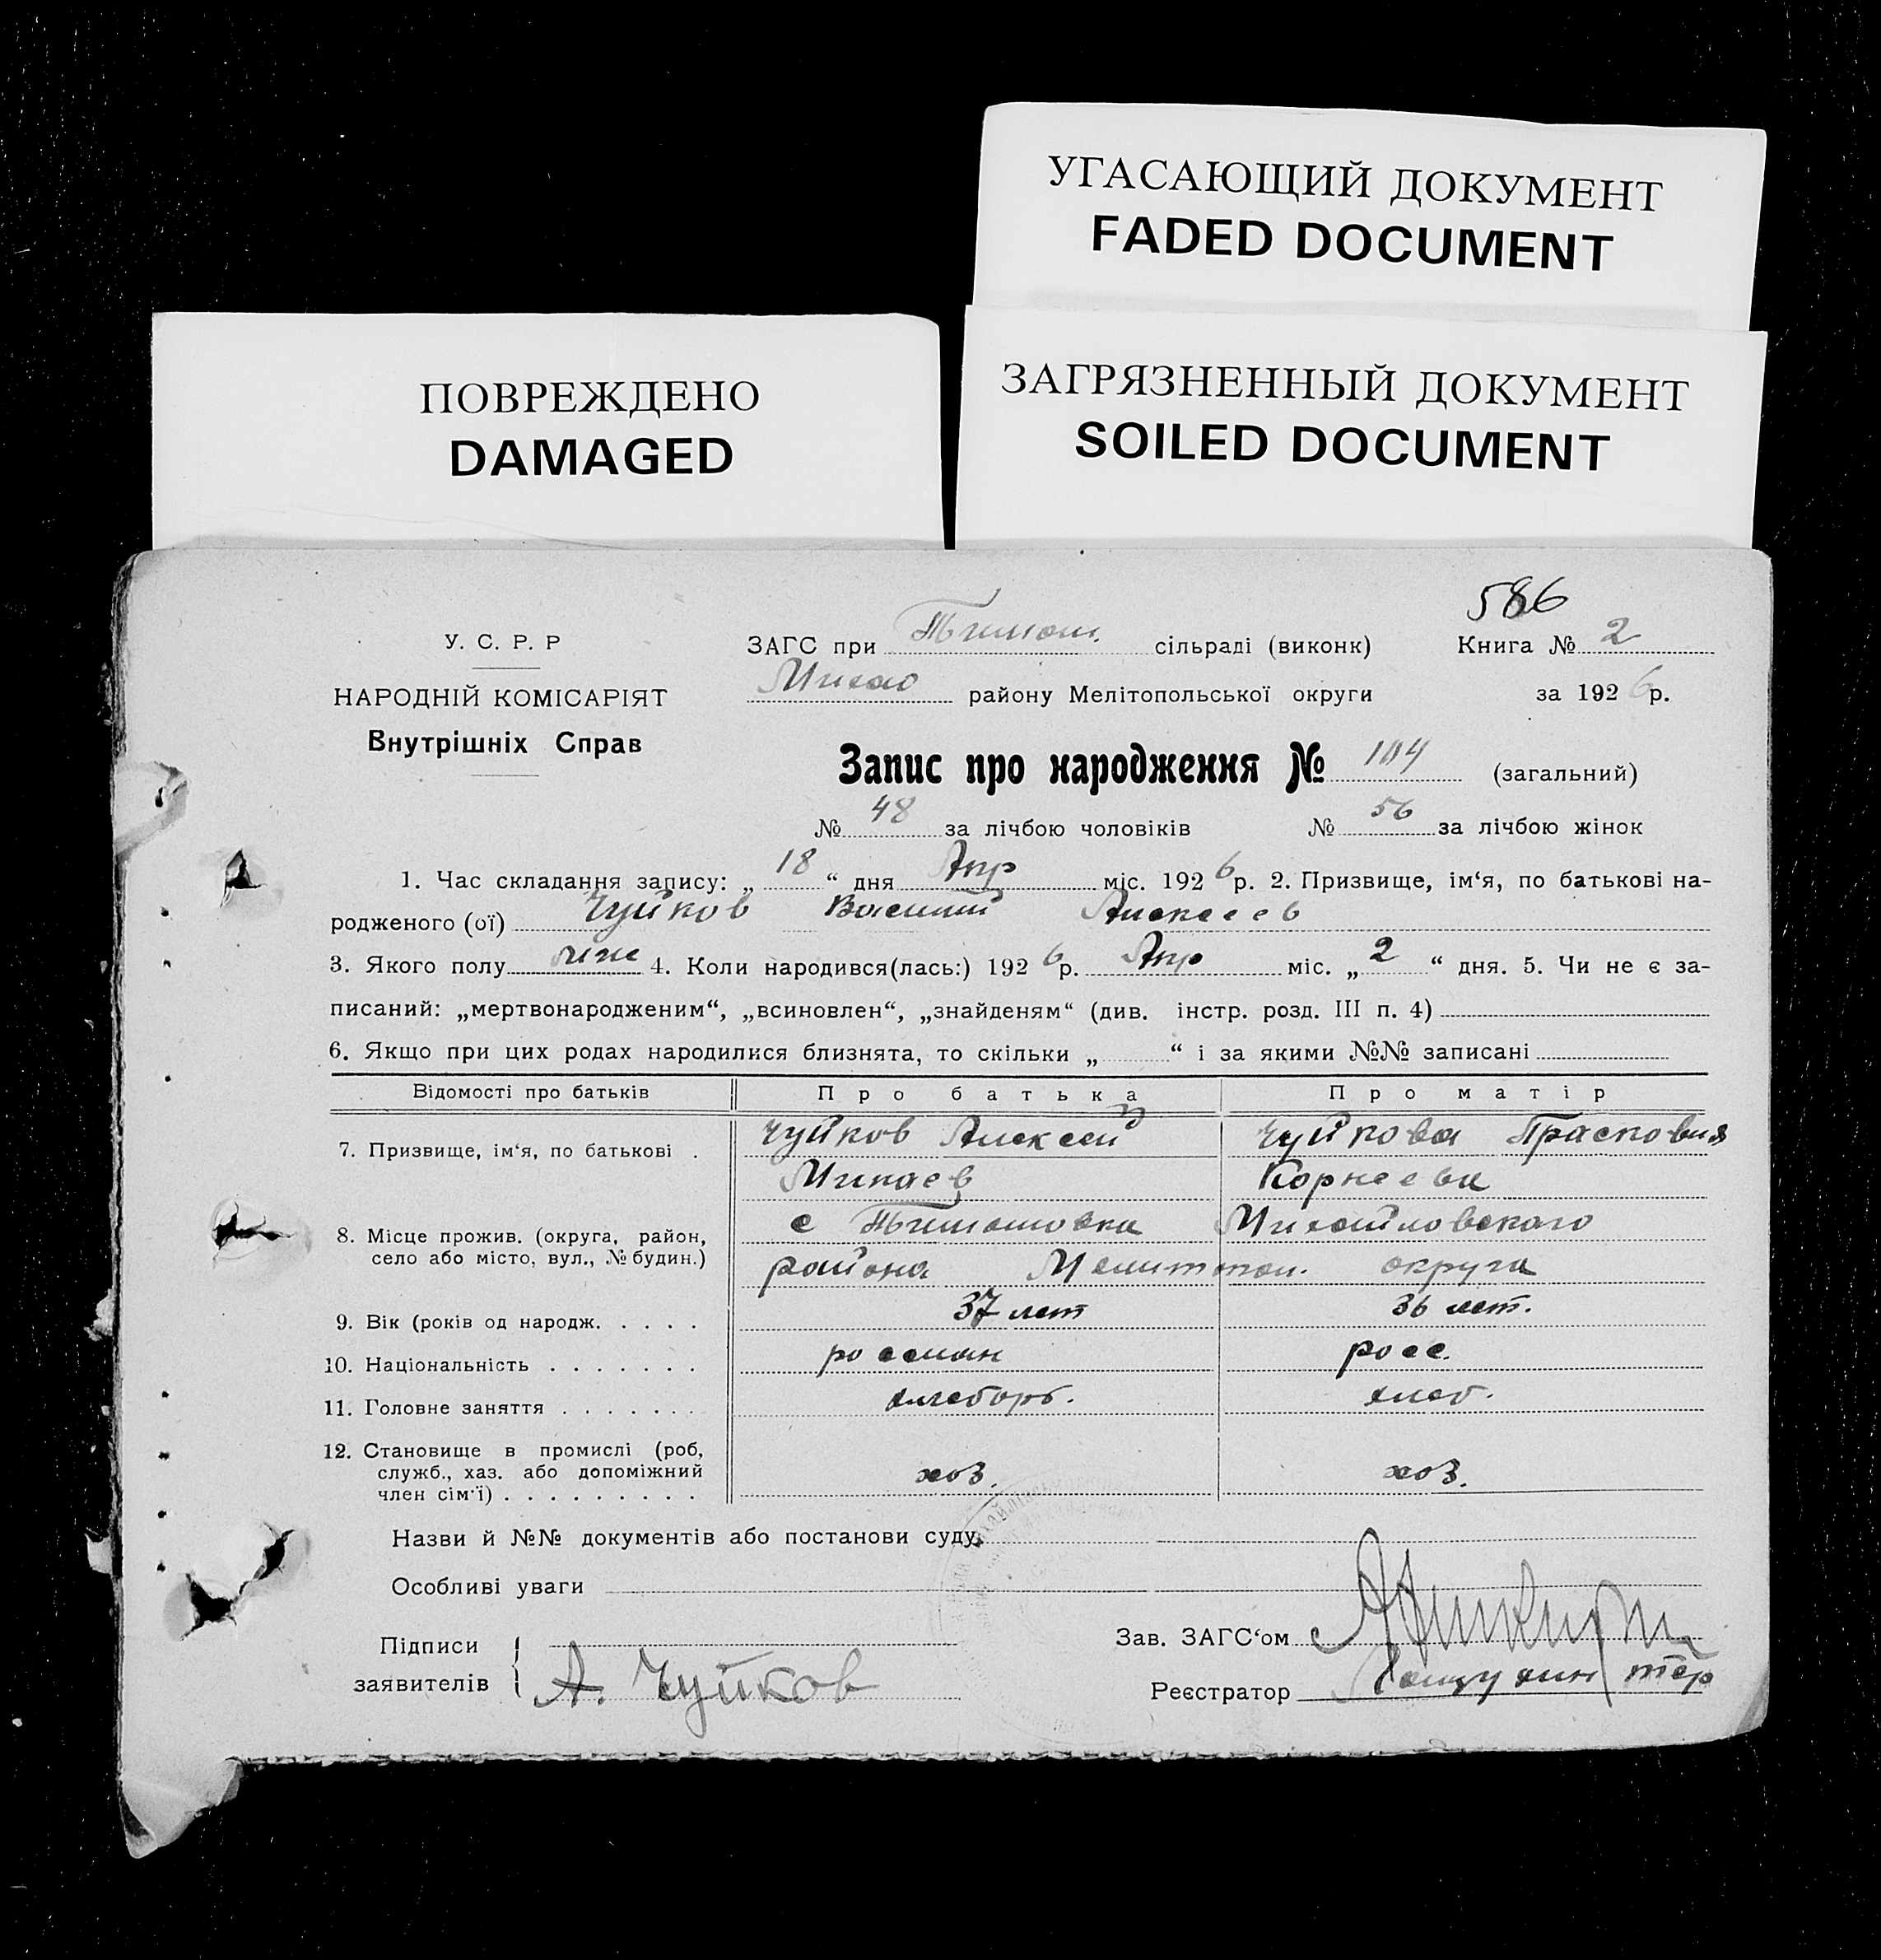 УГАСАЮЩИЙ ДОКУМЕНТ
FADED DOCUMENT
ПОВРЕЖДЕНО
DAMAGED
ЗАГРЯЗНЕННЫЙ ДОКУМЕНТ
SOILED DOCUMENT
586
У. С. Р. Р
НАРОДНІЙ КОМІСАРІЯТ
Внутрішніх Справ
ЗАГС при Тимош. сільраді (виконк) Книга № 2
Михао району Мелітопольської округи за 1926 р.
Запис про народження № 104 (загальний)
№ 48 за лічбою чоловіків № 56 за лічбою жінок
1. Час складання запису: „ 18 “ дня Апр міс. 1926 р. 2. Призвище, ім‘я, по батькові на-
родженого (ої) Чуйков Василий Алексеев
3. Якого полу 4. Коли народився(лась:) 1926 р. Апр міс. „ 2 “ дня. 5. Чи не є за-
писаний: „мертвонародженим“, „всиновлен“, „знайденям“ (див. інстр. розд. III п. 4)
6. Якщо при цих родах народилися близнята, то скільки „ “ і за якими №№ записані
Відомості про батьків Про батька Про матір
7. Призвище, ім‘я, по батькові . Чуйков Алексей Чуйкова Прасковия
Минаев Корнеева
8. Місце прожив. (округа, район, село або місто, вул., № будин.) с Тимошовка Михайловского
района Мелитопол. округа
9. Вік (років од народж. . . . . 37 лет 36 лет.
10. Національність . . . . . . . россиян росс.
11. Головне заняття . . . . . . . хлебороб. хлеб.
12. Становище в промислі (роб,
служб., хаз. або допоміжний
член сім‘ї) . . . . . . . . . хоз. хоз.
Назви й №№ документів або постанови суду
Особливі уваги
Підписи
заявителів А. Чуйков
Зав. ЗАГС‘ом
Реєстратор